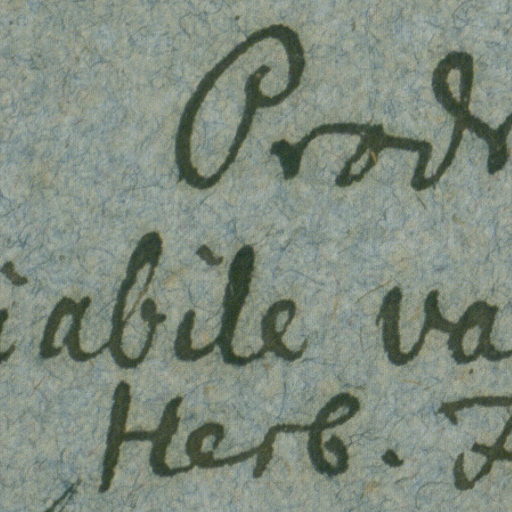 Prod
iabile va
Herb.